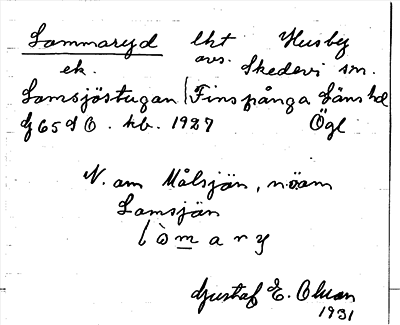 Lommaryd lht Husby
ek. avs. Skedevi sn.
Lomsjöstugan Finspånga läns hd
f 65 S O. kb. 1927 Ögl
N. om Målsjön, nöom
Lomsjön
lòmary
Gustaf E. Olsson
1931